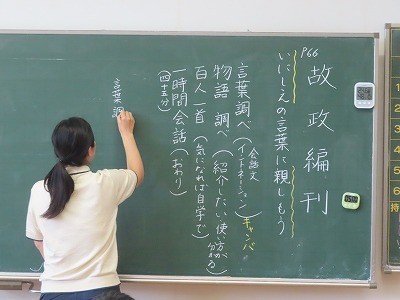 P66
故政編刊
いにしえの言葉に親しもう
言葉調べ(会話文(イントネーション)
キャンバ
物語調べ(紹介したい、使い方が分かる)
百人一首(気になれば自学で)
一時間会話(おわり)
(四十五分)
言葉調